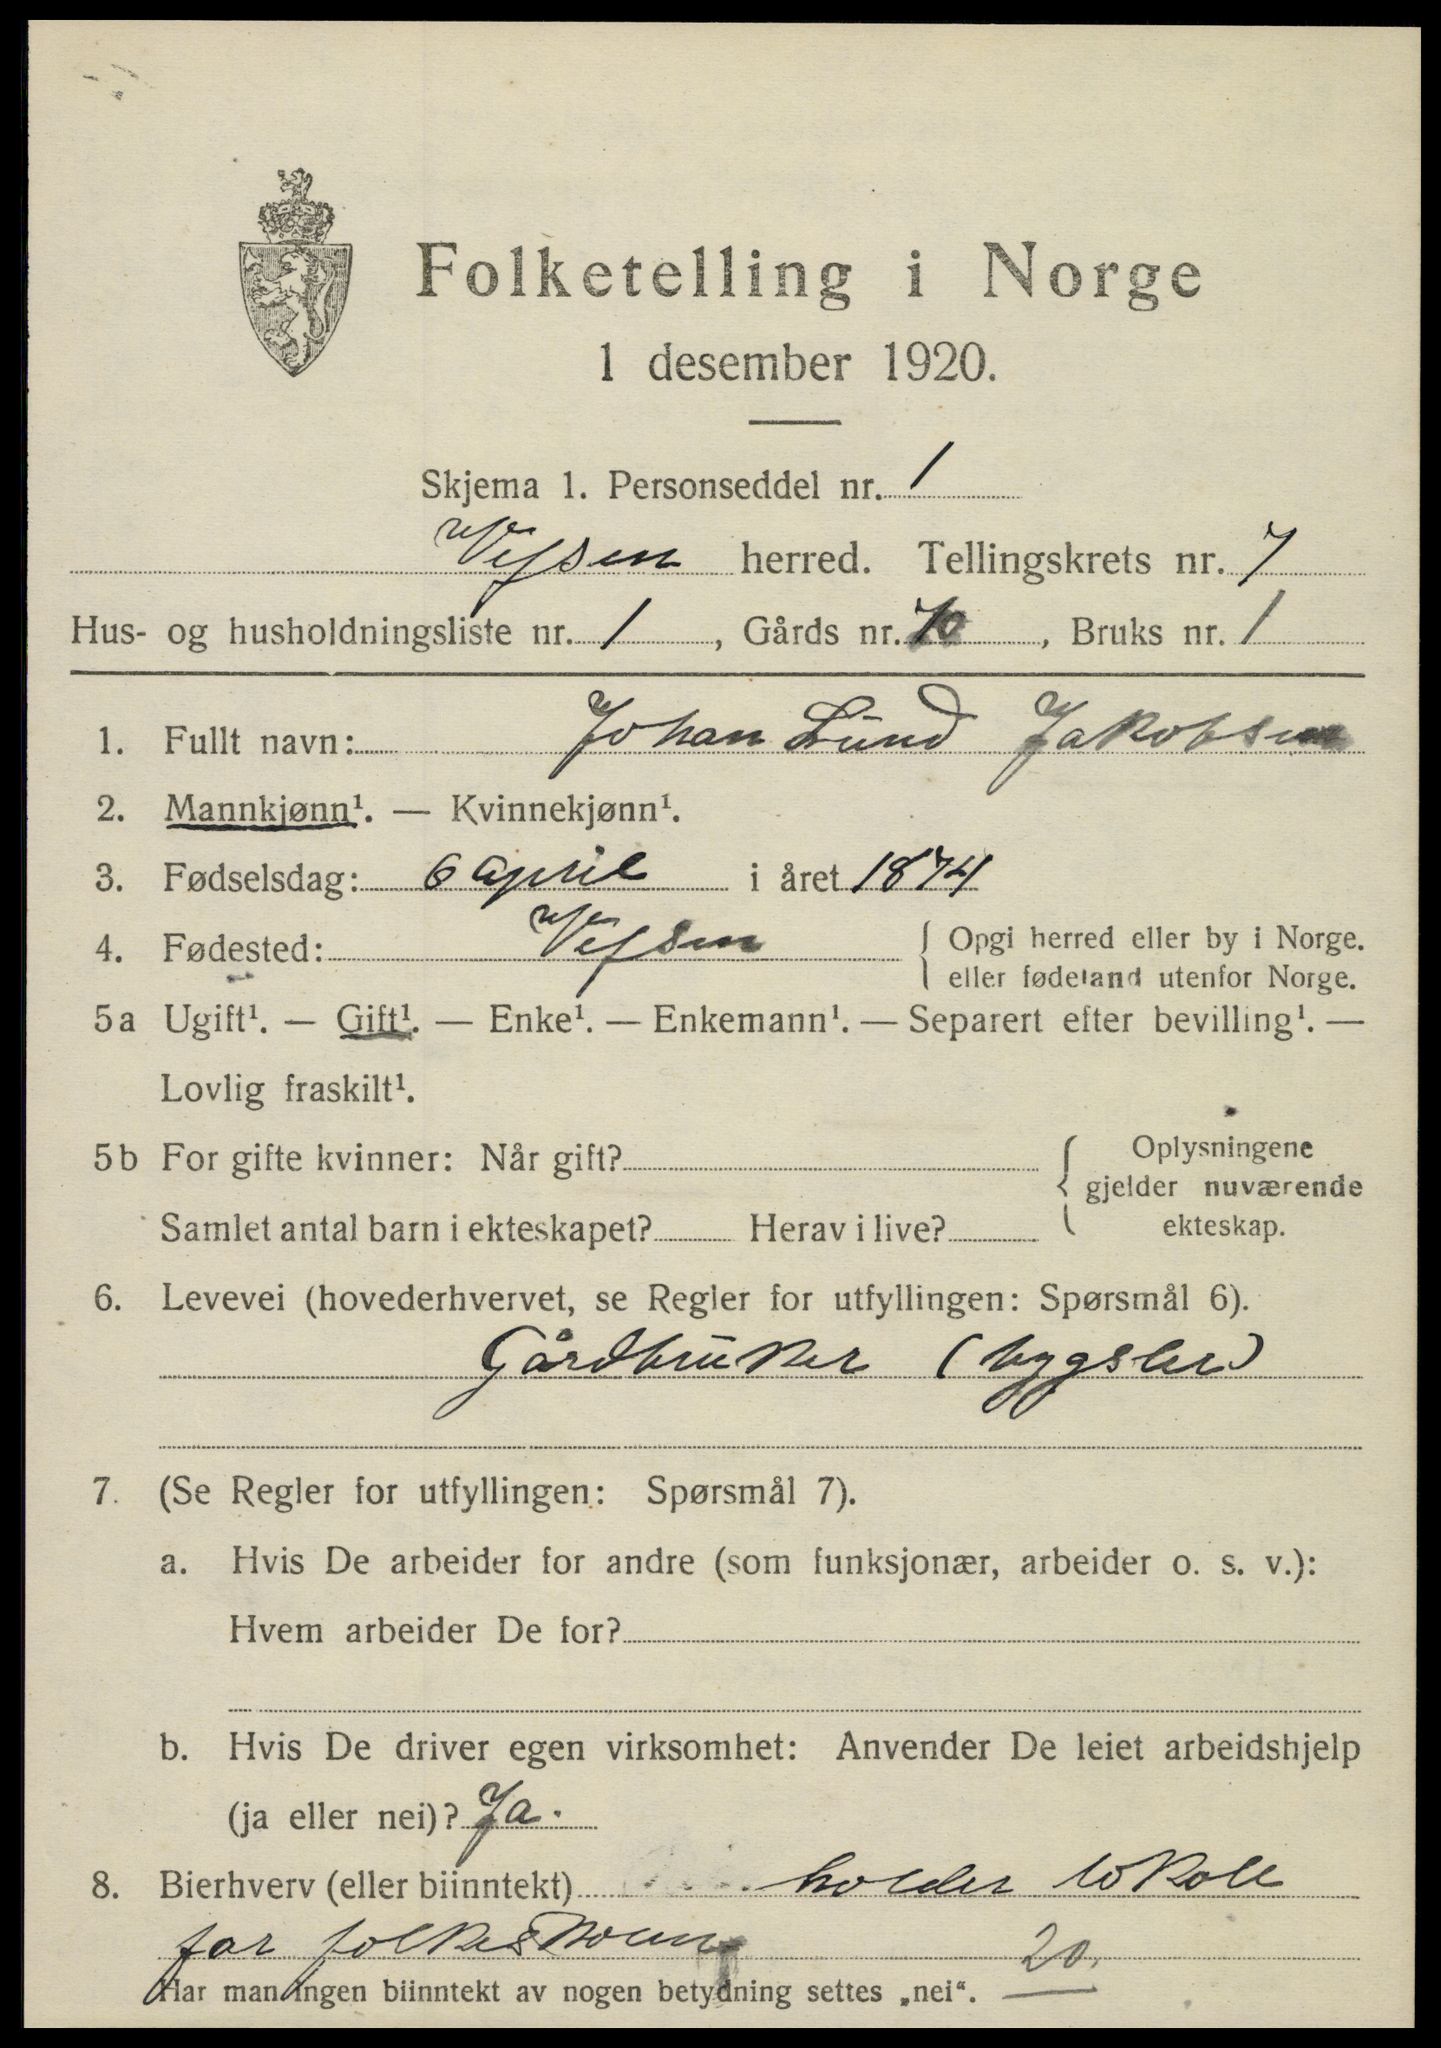 Folketelling i Norge
1 desember 1920.
Skjema 1. Personseddel nr. 1
Vefsen herred. Tellingskrets nr. 7
Hus- og husholdningsliste nr. 1, Gårds nr. 70, Bruks nr. 1
1. Fullt navn: Johan Lund Jakobsen
2. Mannkjønn¹. — Kvinnekjønn¹.
3. Fødselsdag: 6 april i året 1874
4. Fødested: Vefsen { Opgi herred eller by i Norge.
eller fødeland utenfor Norge.
5a Ugift¹. — Gift¹. — Enke¹. — Enkemann¹. — Separert efter bevilling¹. —
Lovlig fraskilt¹.
5b For gifte kvinner: Når gift? { Oplysningene
gjelder nuværende
Samlet antal barn i ekteskapet? Herav i live? ekteskap.
6. Levevei (hovederhvervet, se Regler for utfyllingen: Spørsmål 6).
Gårdbruker (bygsler)
7. (Se Regler for utfyllingen: Spørsmål 7).
a. Hvis De arbeider for andre (som funksjonær, arbeider o. s. v.):
Hvem arbeider De for?
b. Hvis De driver egen virksomhet: Anvender De leiet arbeidshjelp
(ja eller nei)? Ja.
8. Bierhverv (eller biinntekt) holder lokale
for folkeskolen 20.
Har man ingen biinntekt av nogen betydning settes „nei“.